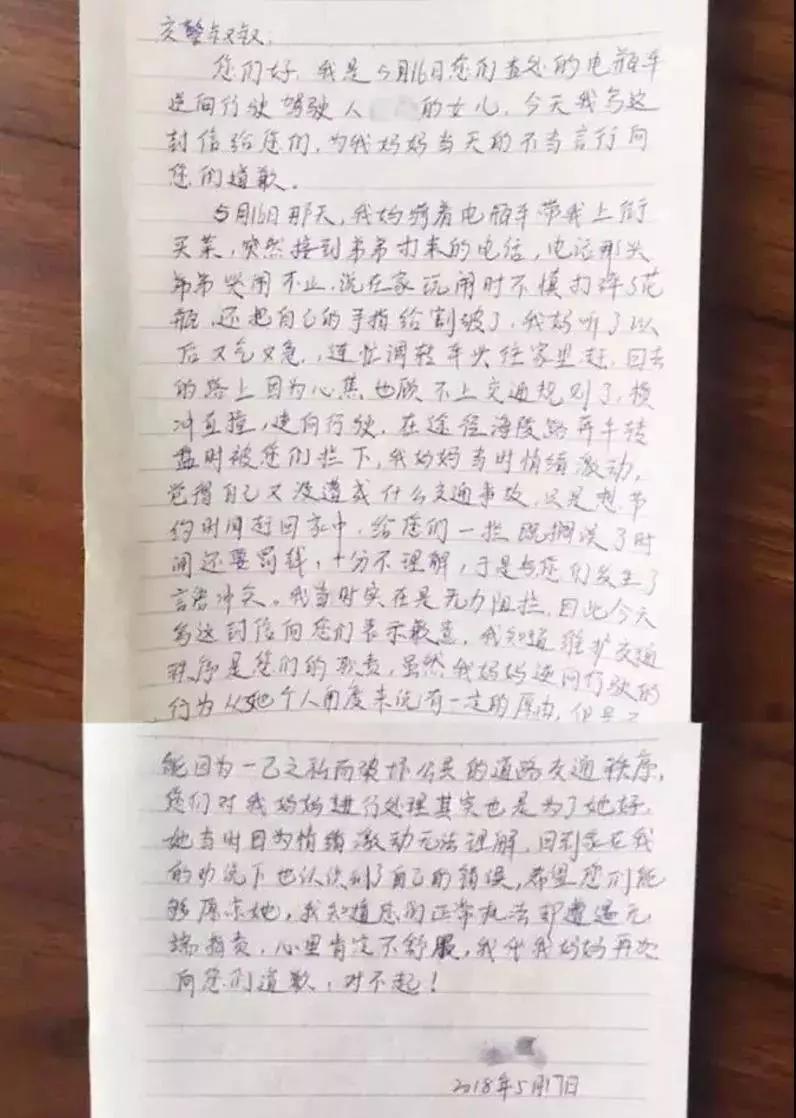 交警叔叔:
您们好,我是5月16日您们查处的电瓶车
逆向行驶驾驶人 的女儿,今天我写这
封信给您们,为我妈妈当天的不当言行向
您们道歉。
5月16日那天,我妈骑着电瓶车带我上街
买菜,突然接到弟弟打来的电话,电话那头
弟弟哭闹不止,说在家玩闹时不慎打碎了花
瓶,还把自己的手指给割破了,我妈听了以
后又气又急,连忙调转车头往家里赶,回去
的路上因为心焦也顾不上交通规则了,横
冲直撞,逆向行驶,在途径海陵路 转
盘时被您们拦下,我妈妈当时情绪激动,
觉得自己又没造成什么交通事故,只是想节
约时间赶回家中,给您们一拦既搁误了时
间还要罚钱,十分不理解,于是与您们发生了
言语冲突。我当时实在是无力阻拦,因此今天
写这封信向您们表示歉意,我知道维护交通
秩序是您们的职责,虽然我妈妈逆向行驶的
行为从她个人角度来说有一定的原由,但是不
能因为一己之私而破坏公共的道路交通秩序,
您们对我妈妈进行处理其实也是为了她好,
她当时因为情绪激动无法理解,回到家在我
的劝说下也认识到了自己的错误,希望您们能
够原谅她,我知道您们正常执法却遭遇无
端指责,心里肯定不舒服,我代我妈妈再次
向您们道歉,对不起!
2018年5月17日